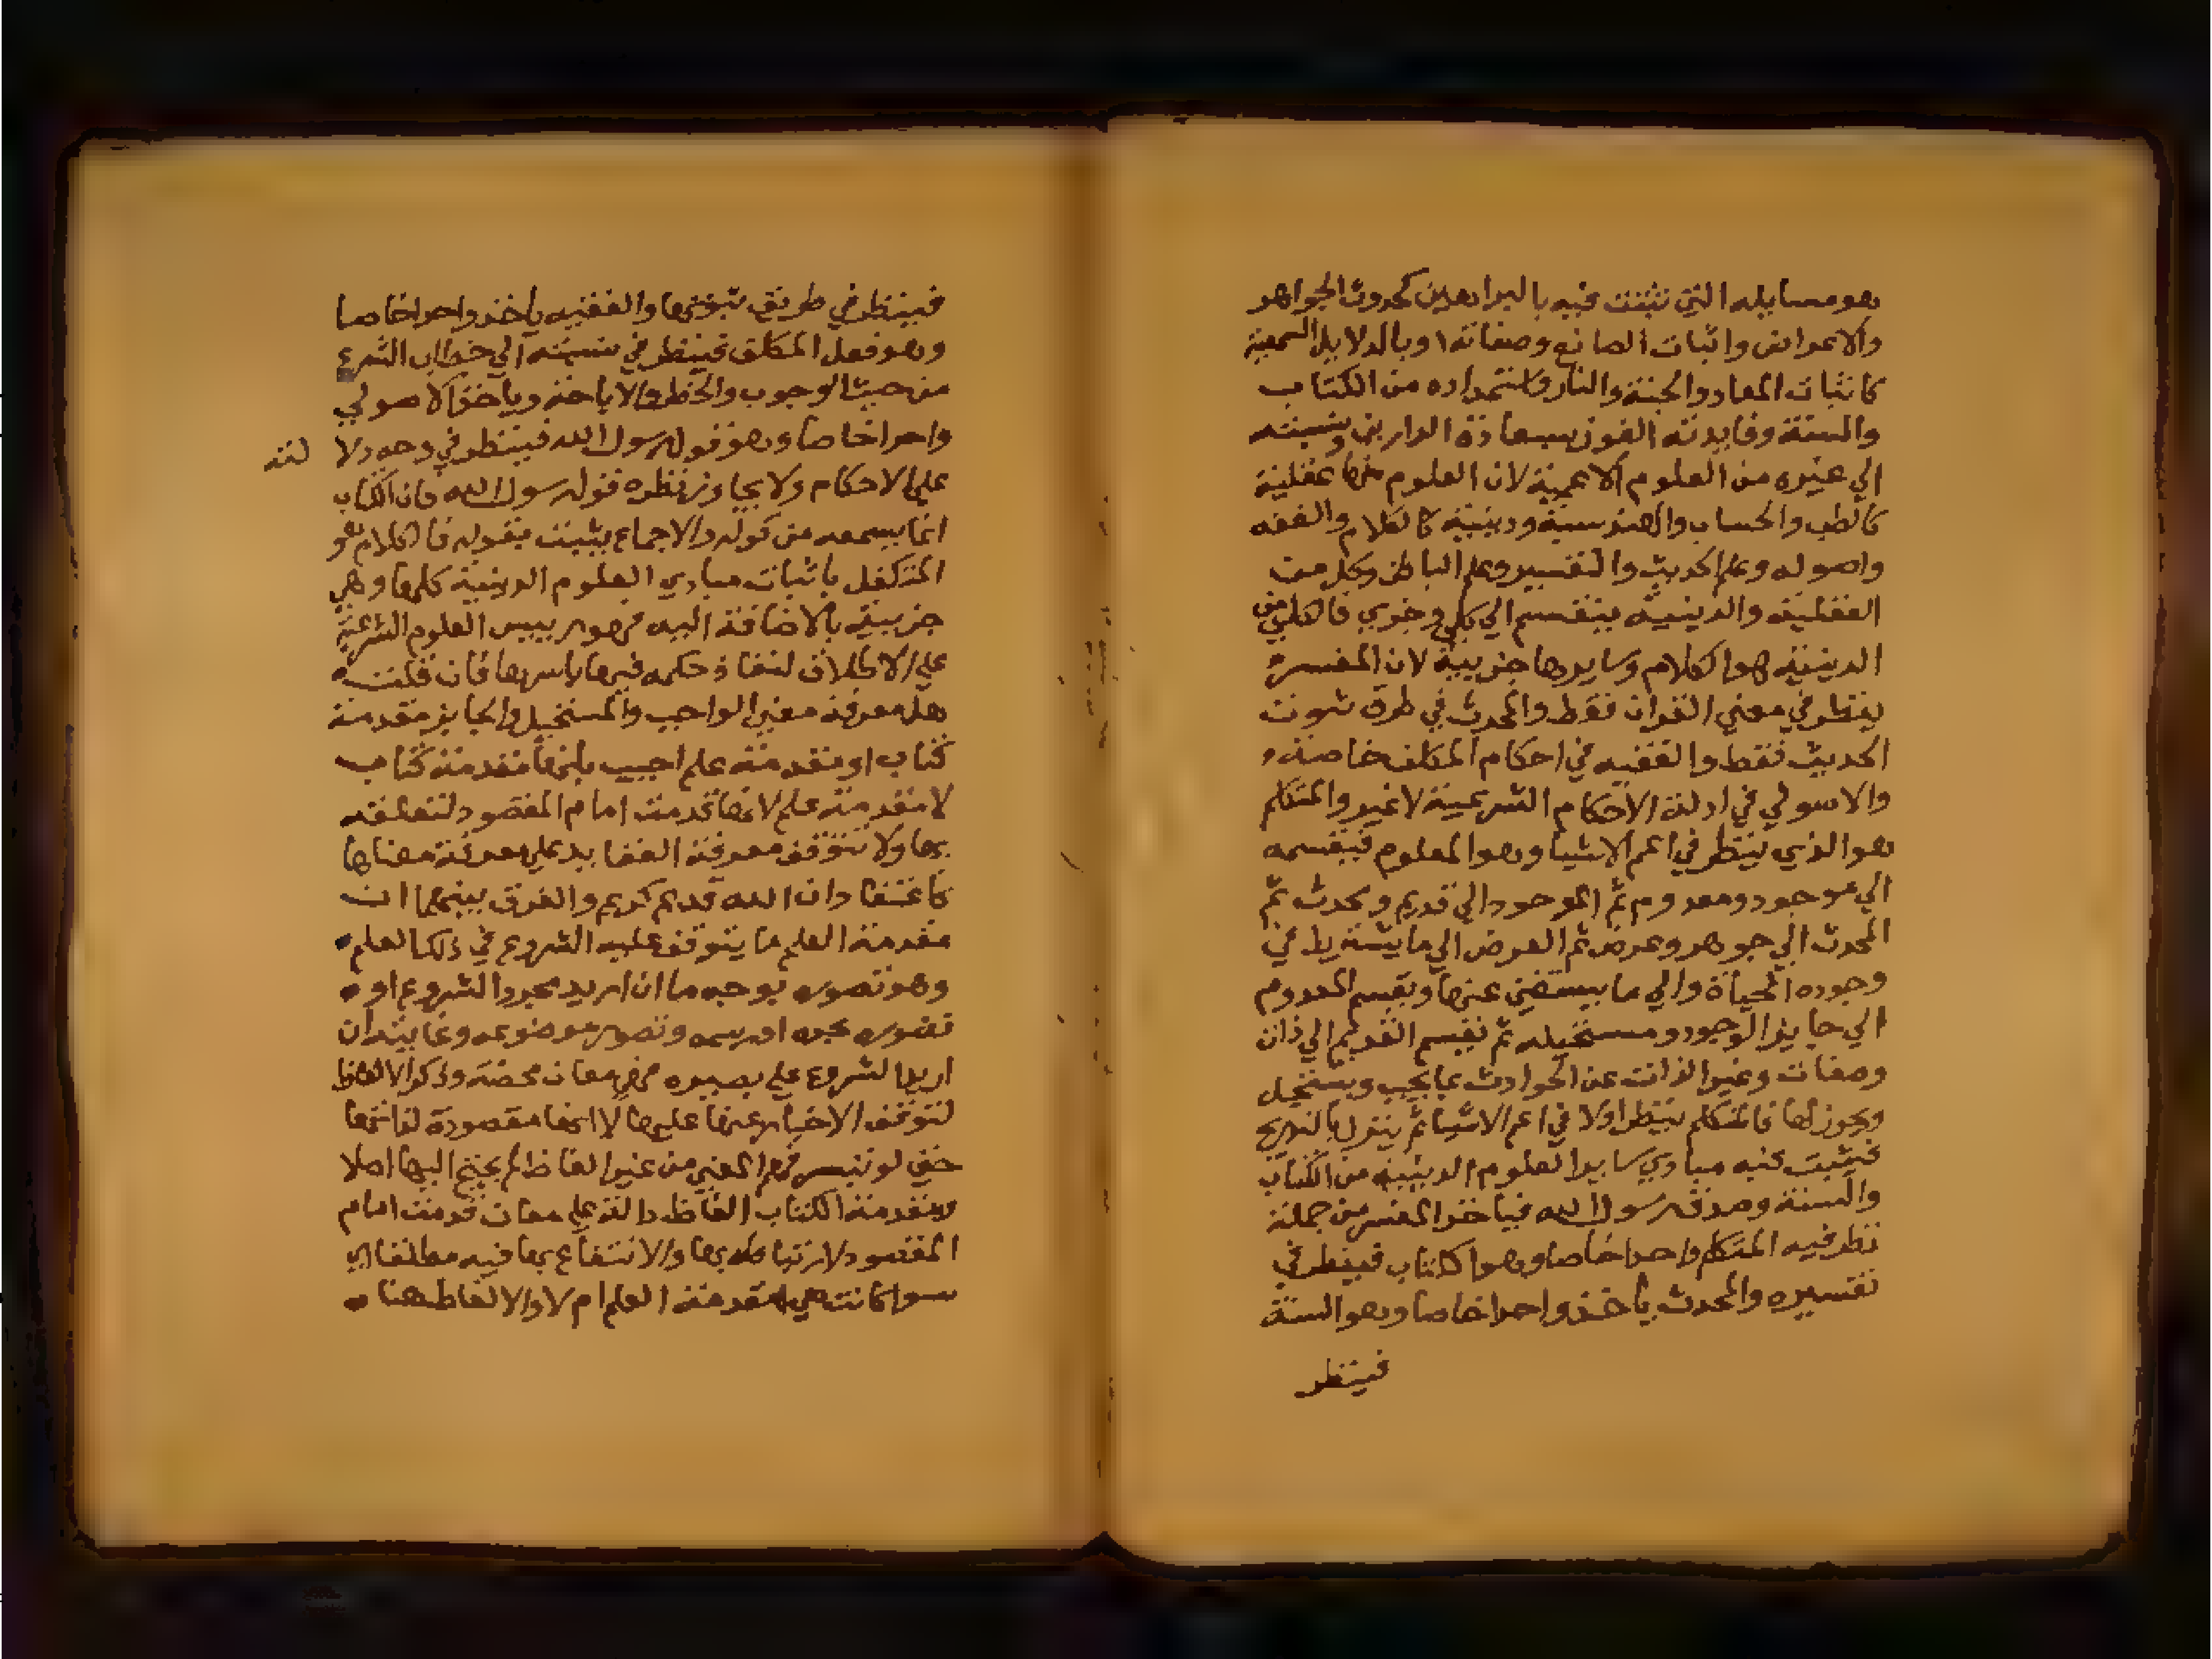 هو مسايله التي تثبت فيه بالبراهين كحدوث الجواهر
والاعراض واثبات الصانع وصفاته وبالدلايل السمعية
كاثبات المعاد والجنة والنار واستمداده من الكتاب
والسنة وفايدته الفوز بسعادة الدارين ونسبته
الي غيره من العلوم الاعمية لان العلوم منها عقلية
كالطب والحساب والهندسية ودينية كالكلام والفقه
واصوله وعلم الحديث والتفسير وعلم الباطن وكل من
العقلية والدينية ينقسم الي كلي وجزي فالكلي من
الدينية هو الكلام وسايرها جزيية لان المفسر
ينظر في معني القران فقط والمحدث في طرق ثبوت
الحديث فقط والفقيه في احكام المكلف خاصة
والاسولي في ادلة الاحكام الشرعية لا غير والمتكلم
هو الذي ينظر في اعم الاشيا وهو المعلوم فيقسمه
الي موجود ومعدوم ثم الموجود الي قديم ومحدث ثم
المحدث الي جوهر وعرض ثم العرض الي ما يشترط في
وجوده الحياة والي ما يستغني عنها ويقسم المعدوم
الي جايز الوجود ومستحيله ثم يقسم القديم الي ذات
وصفات وغير الذات عن الحوادث بما يجب ويستحيل
ويجوز لها فالمتكلم ينظر اولا في اعم الاشيا ثم ينزل بالتدريج
فيثبت فيه مبادي ساير العلوم الدينية من الكتاب
والسنة وصدق رسول الله فياخذ المفسر من جملة
نظر فيه المتكلم واحدا خاصا وهو الكتاب فينظر في
تفسيره والمحدث ياخذ واحدا خاصا وهو السنة
فينظر
فينظر في طريق ثبوتها والفقيه ياخذ واحدا خاصا
وهو فعل المكلف فينظر في نسبته الي خطاب الشرع
من حيث الوجوب والحظر والاباحة وياخذ الاصولي
واحدا خاصا وهو قول رسول الله فينظر في وجه دلا لته
علي الاحكام ولا يجاوز نظره قول رسول الله فان الكتاب
انما يسمعه من قوله والاجماع يثبت بقوله فالكلام هو
المتكفل باثبات مبادي العلوم الدينية كلها وهي
جزيية بالاضافة اليه فهو رييس العلوم الشرعية
علي الاطلاق لنفاذ حكمه فيها باسرها فان قلت
هل معرفة معني الواجب والمستحيل والجايز مقدمة
كتاب او مقدمة علم اجيب بانها مقدمة كتاب
لا مقدمة علم لانها قدمت امام المقصود لتعلقه
بها ولا تتوقف معرفة العقايد علي معرفة معناها
كاعتقاد ان الله قديم كريم والفرق بينهما ان
مقدمة العلم ما يتوقف عليه الشروع في ذلك العلم
وهو تصوره بوجه ما ان اريد مجرد الشروع او
تصوره بحده او رسمه وتصور موضوعه وغايته ان
اريد الشروع علي بصيره فهي معان محضة وذكر الالفاظ
لتوقف الاخبار عنها عليها لا انها مقصودة لذاتها
حتي لو تيسر فهم المعني من غير الفاظ لم يحتج اليها اصلا
ومقدمة الكتاب الفاظ دالة علي معان قدمت امام
المقصود لارتباطه بها والانتفاع بها فيه مطلقا اي
سوا كانت هي مقدمة العلم ام لا والالفاظ هنا